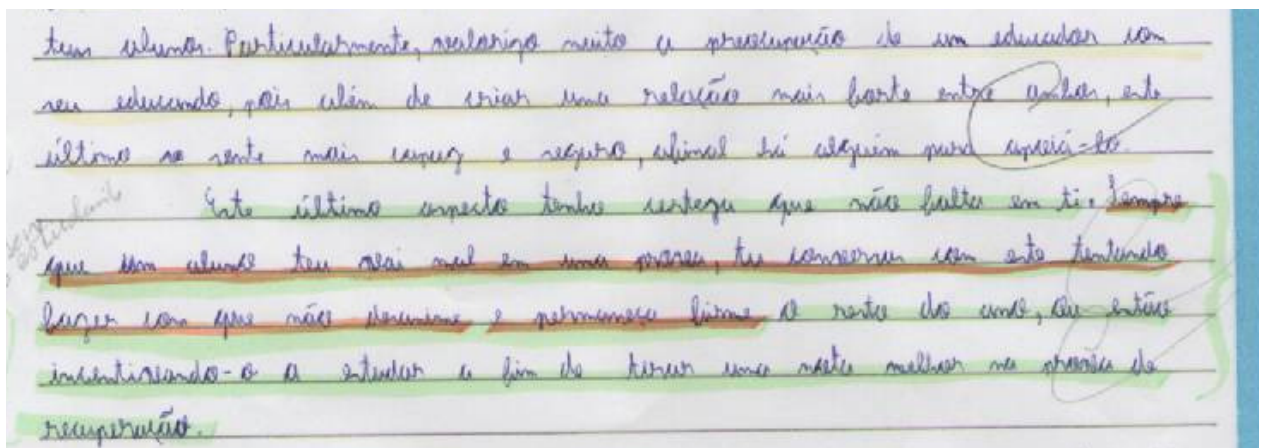 teus alunos. Particularmente, valorizo muito a preocupação de um educador com
seu educando, pois além de criar uma relação mais forte entre ambos, este
último se sente mais capaz e seguro, afinal há alguém para apoiá-lo.
Este último aspecto tenho certeza que não falta em ti. Sempre
que um aluno teu vai mal em uma prova, tu conversas com este tentando
fazer com que não desanime e permaneça firme o resto do ano, ou então
incentivando-o a estudar a fim de tirar uma nota melhor na prova de
recuperação.